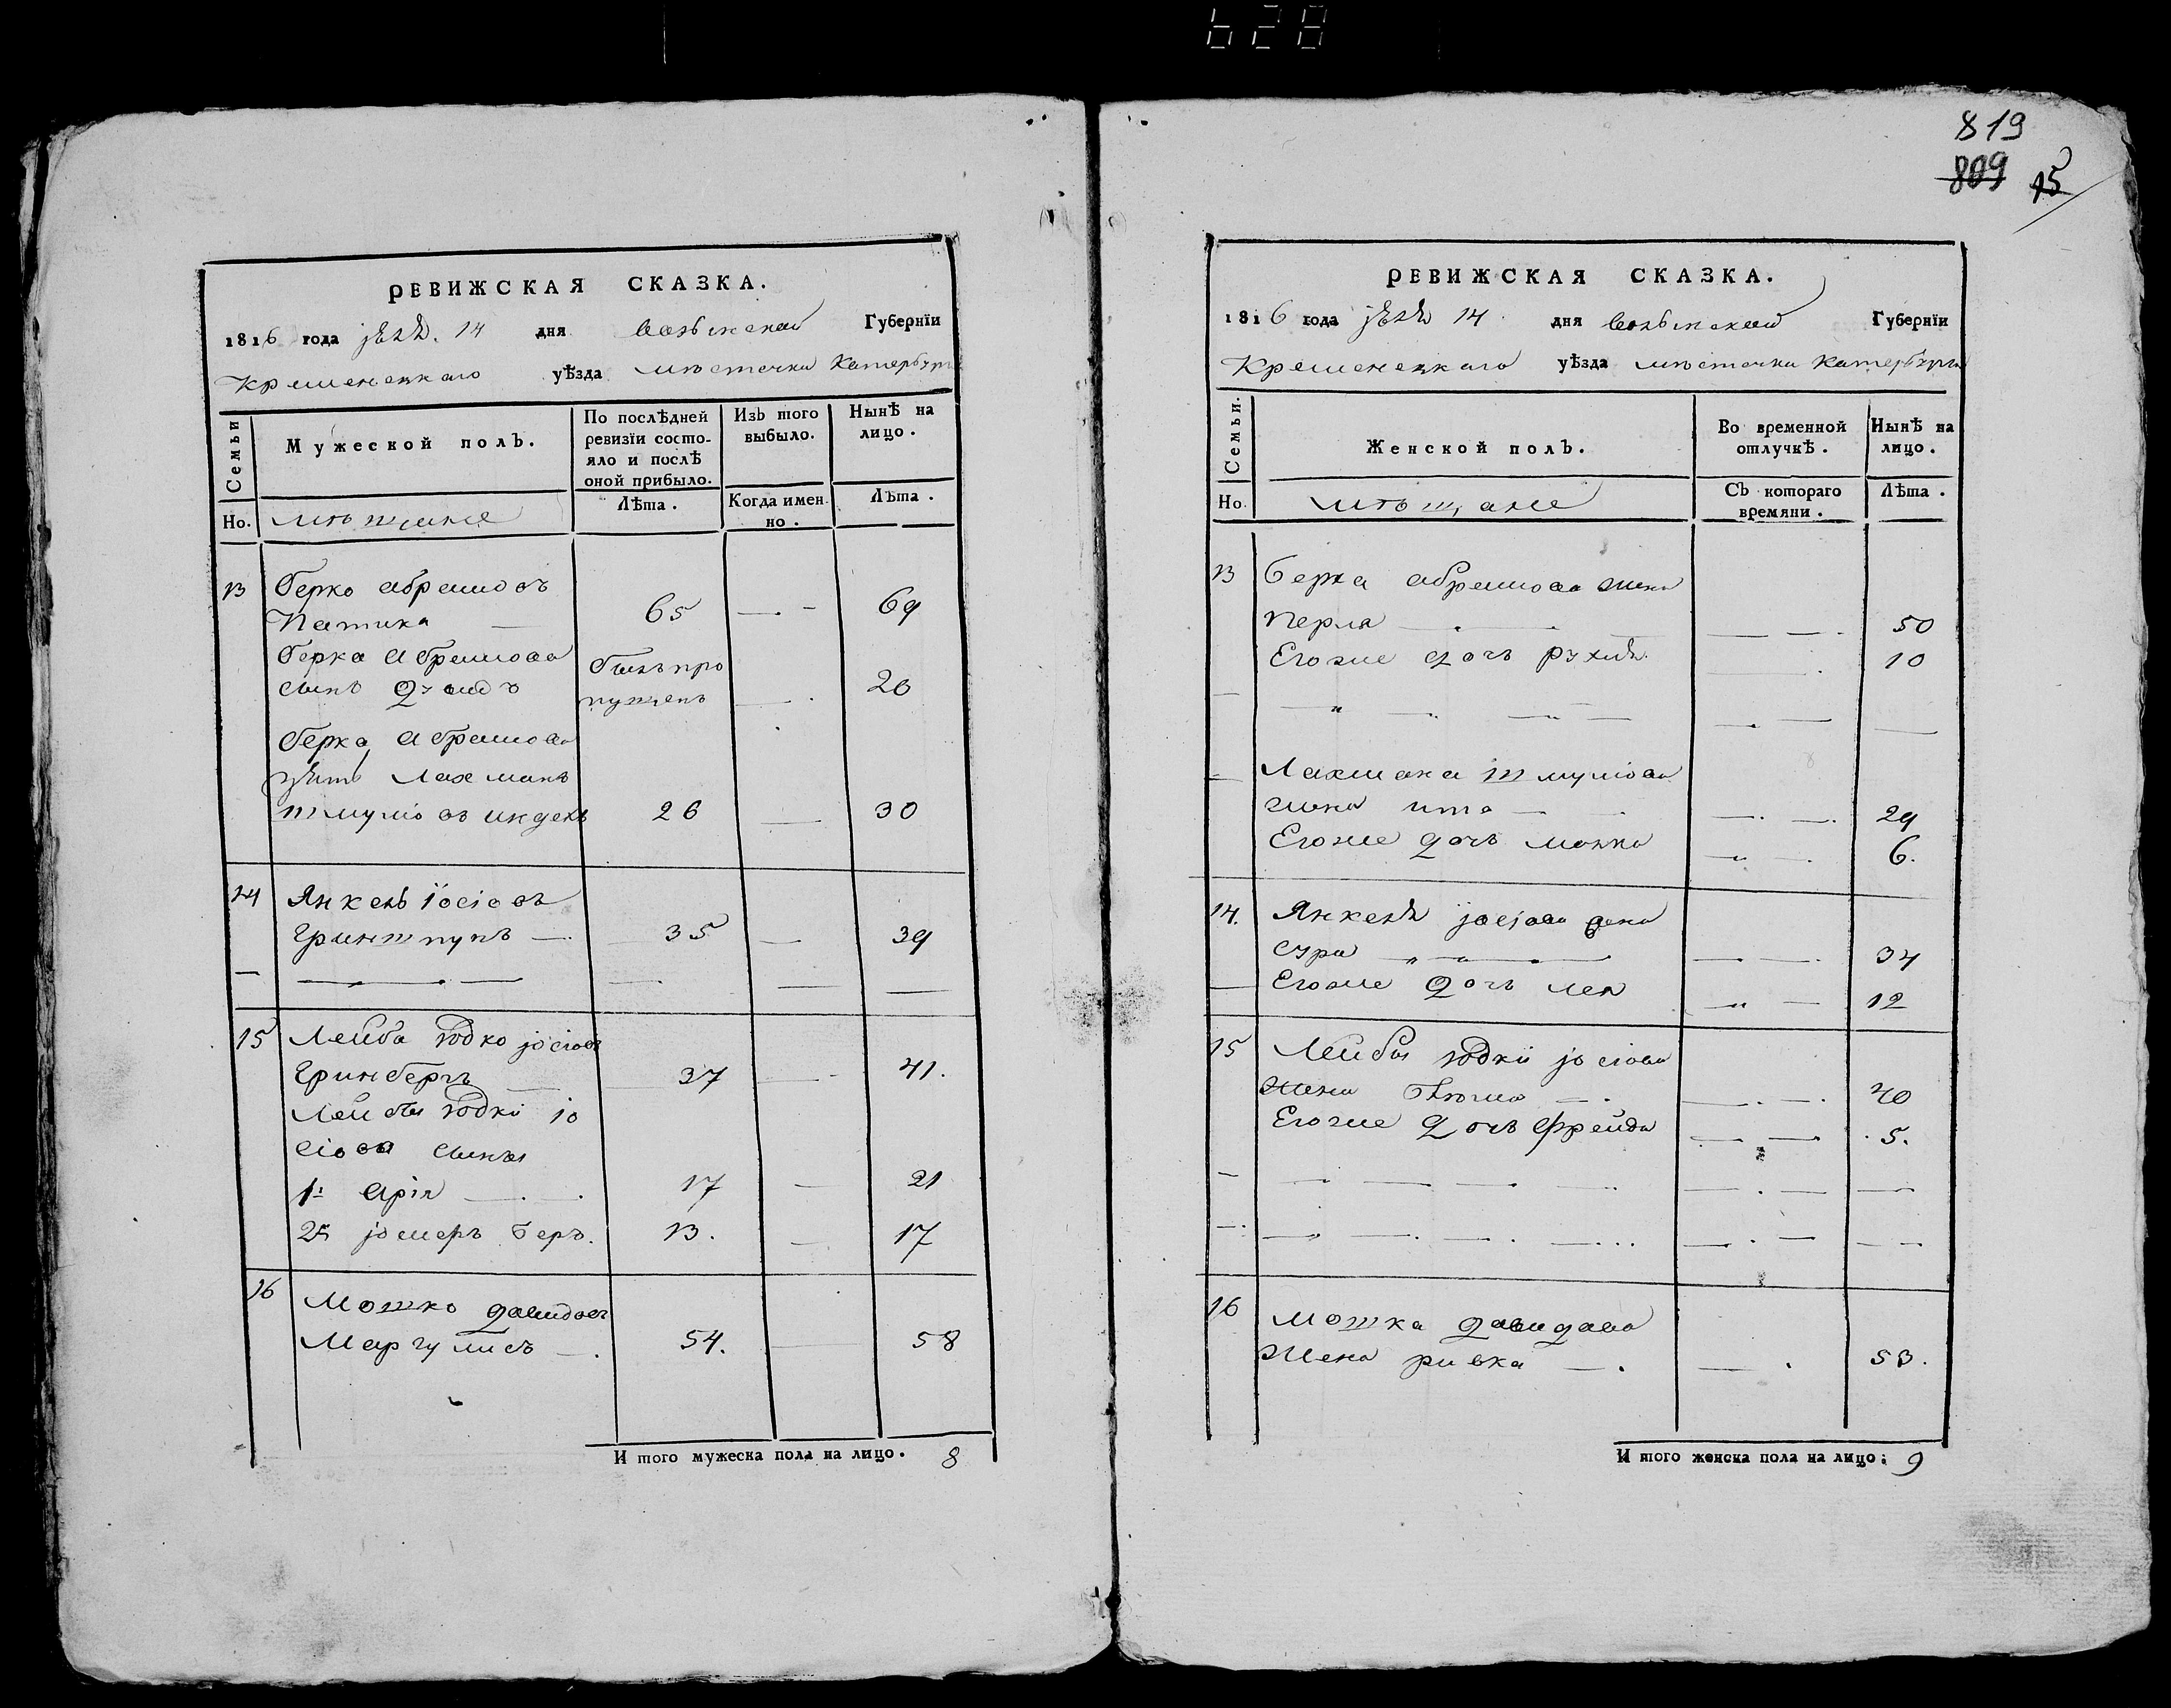 628
819
809 15
РЕВИЖСКАЯ СКАЗКА.
1816 года іюля. 14 дня волынской Губернїи
Кременецкаго уѣзда местечка Катербурга
Семьи
Мужеской полъ.
По послѣдней ревизїи состо-
яло и послѣ
оной прибыло.
Изъ того
выбыло.
Нынѣ на
лицо.
Но. мѣщане
Лѣта.
Когда имен-
но.
Лѣта.
13 Берко абрамовъ
Патика — 65 — 69
Берка Абрамова былъ про
сынъ Давидъ пущенъ — 20
Берка Абрамова
зять Лахманъ
шмуліовъ 26 — 30
14 Янкель іосіовъ
Гриншпунъ — 35 — 39
15 Лейба юдко іосіовъ
Гринбергъ 37 — 41.
Лейбы юдки іо
сіова сыны
1й арія — 17 — 21
2й іомеръ беръ. 13. — 17
16 Мошко давидовъ
Маргулисъ — 54. — 58
И того мужеска пола на лицо. 8
РЕВИЖСКАЯ СКАЗКА.
1816 года іюля 14 дня волынской Губернїи
Кременецкаго уѣзда местечка Катербурга
Семьи.
Женской полъ.
Во временной
отлучкѣ.
Нынѣ на
лицо.
Но. мѣщане
Съ котораго
времяни.
Лѣта.
13 Берка абрамова жена
Перля — 50
Его же дочь рухля. 10
Лахмана шмуліова
жена ита — 29
Его же дочь малка 6.
14. Янкеля іосіова жена
сура — 34
Его же дочь лея 12
15 Лейбы юдки іосіова
жена блюма — 40
Его же дочь фрейда 5.
16 Мошка давидова
жена ривка — 53.
И того женска пола на лицо: 9